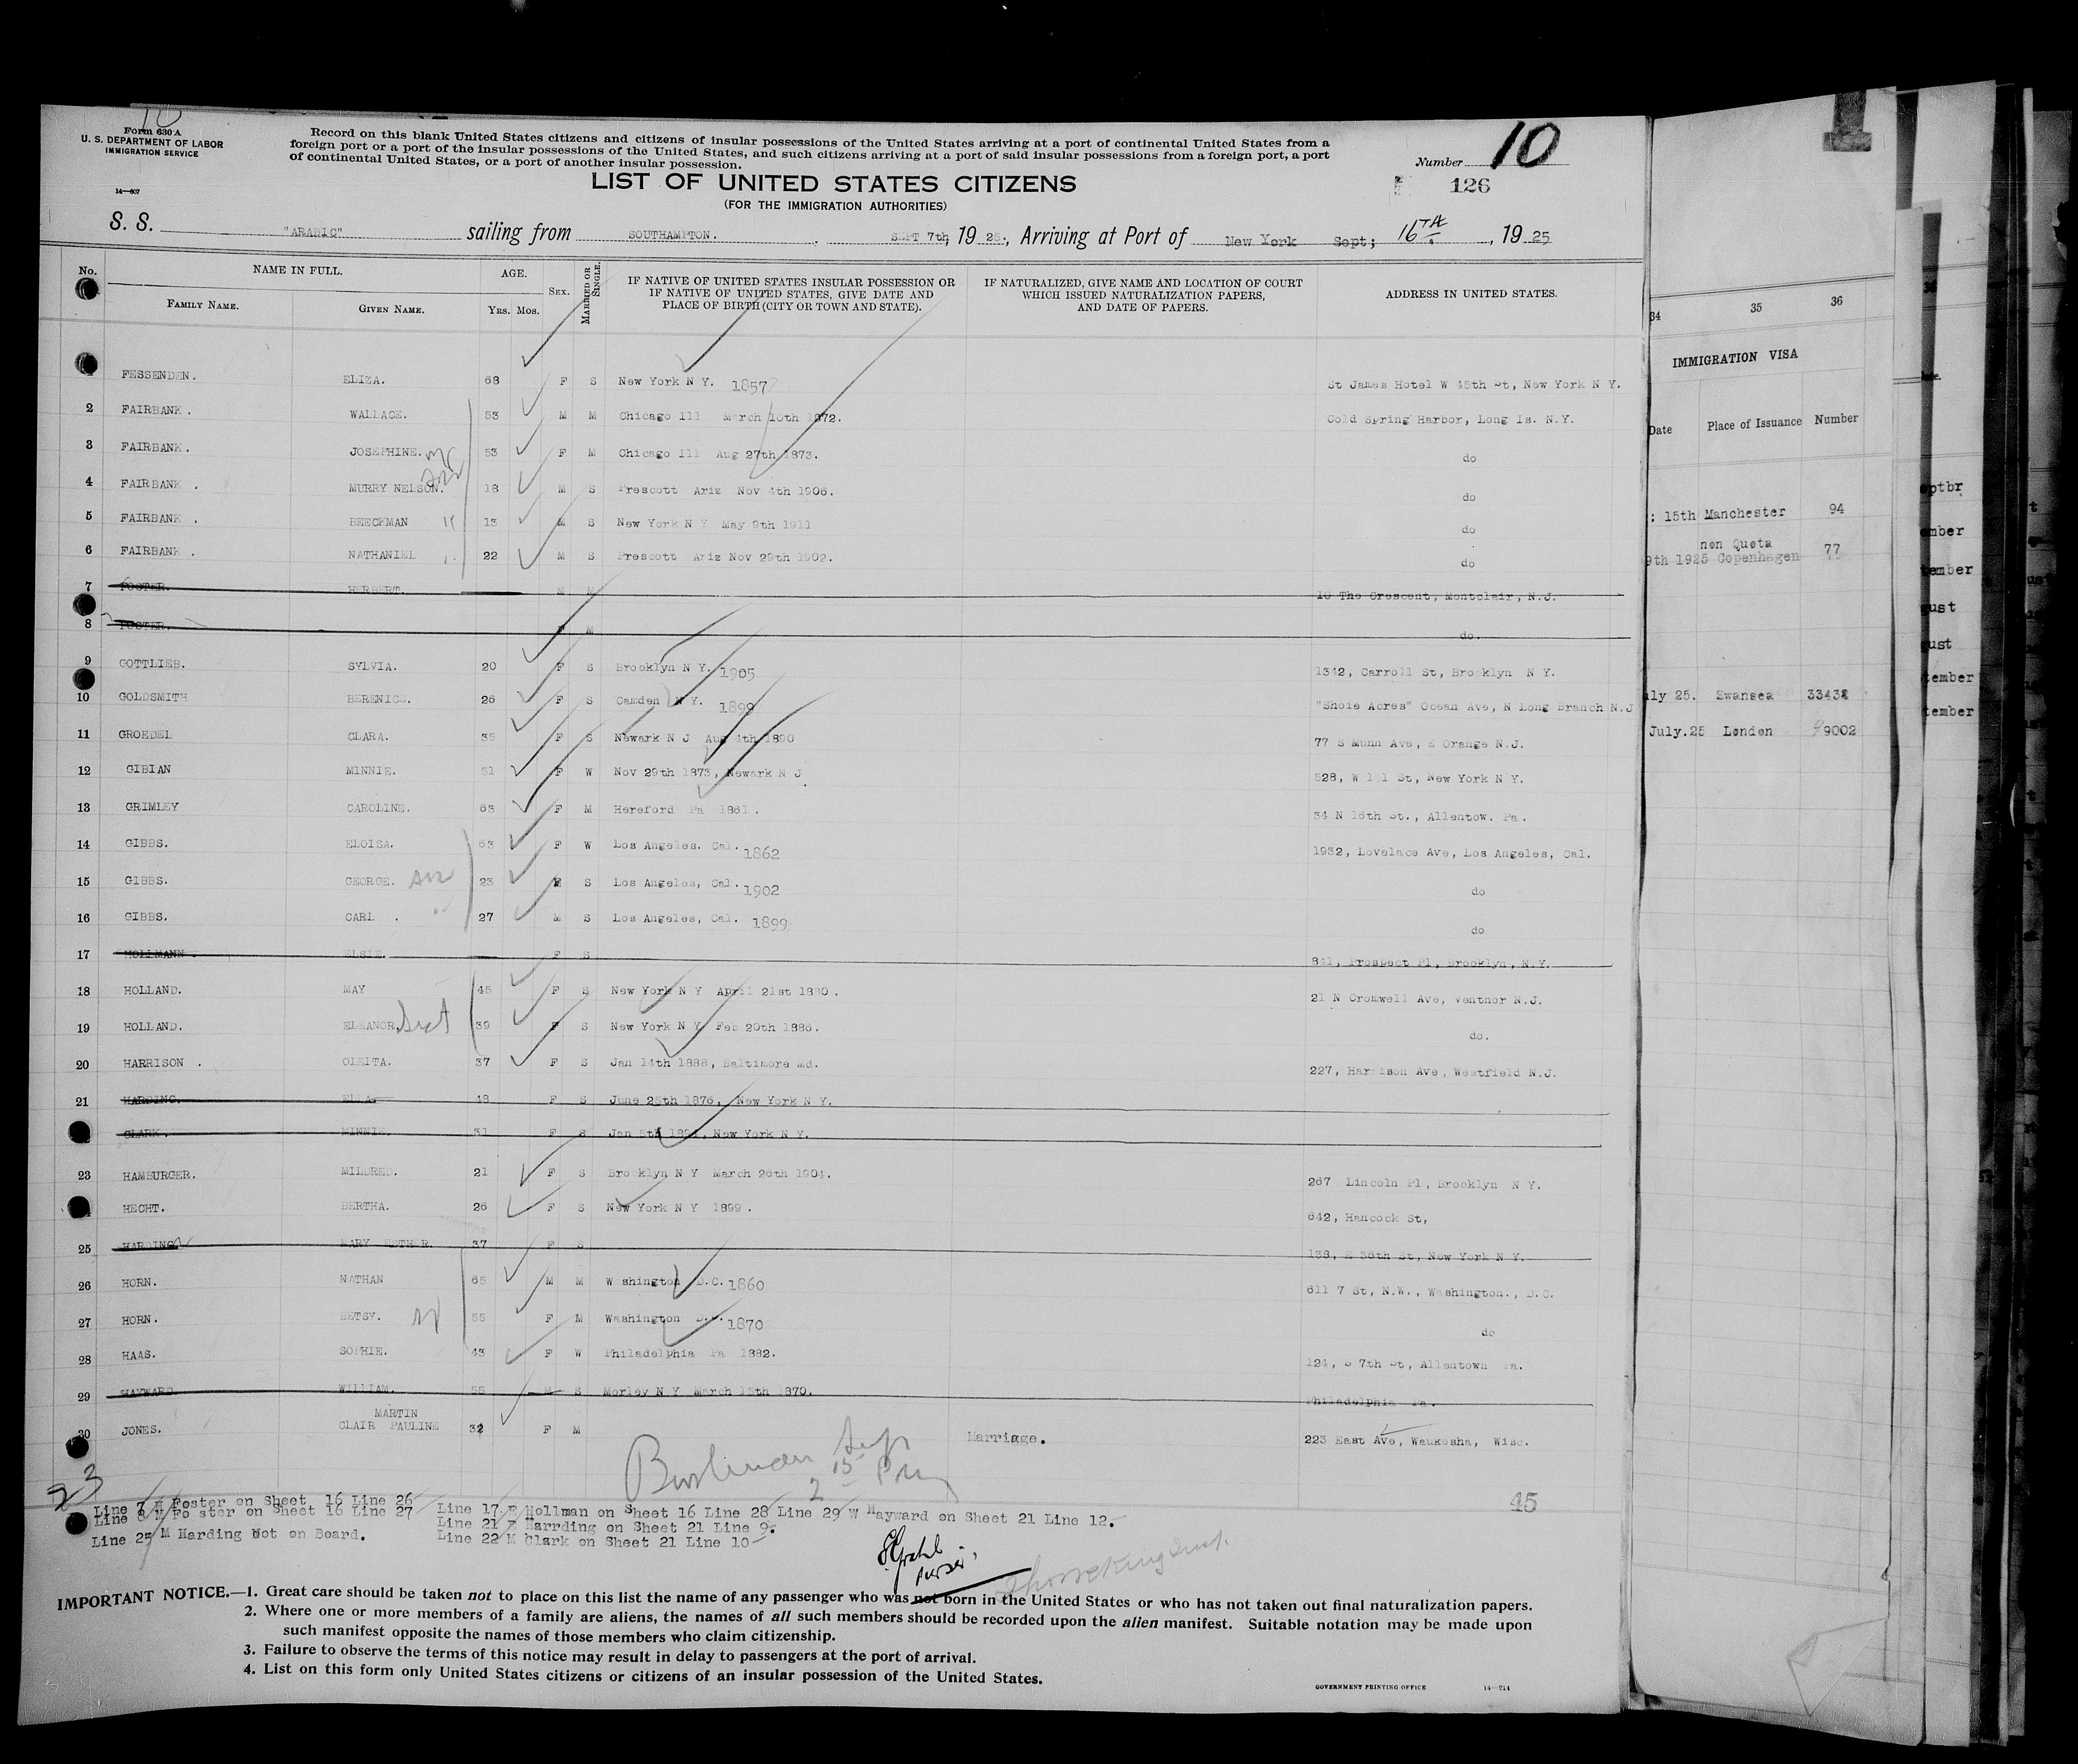 10
Form 630 A
U. S. DEPARTMENT OF LABOR
IMMIGRATION SERVICE
14—607
Record on this blank United States citizens and citizens of insular possessions of the United States arriving at a port of continental United States from a
foreign port or a port of the insular possessions of the United States, and such citizens arriving at a port of said insular possessions from a foreign port, a port
of continental United States, or a port of another insular possession.
Number 10
126
LIST OF UNITED STATES CITIZENS
(FOR THE IMMIGRATION AUTHORITIES)
S. S. "ARABIC" sailing from SOUTHAMPTON. SEPT 7th, 1925., Arriving at Port of New York Sept; 16TH, 1925
No. NAME IN FULL. AGE. SEX. MARRIED OR SINGLE. IF NATIVE OF UNITED STATES INSULAR POSSESSION OR IF NATIVE OF UNITED STATES, GIVE DATE AND PLACE OF BIRTH (CITY OR TOWN AND STATE). IF NATURALIZED, GIVE NAME AND LOCATION OF COURT WHICH ISSUED NATURALIZATION PAPERS, AND DATE OF PAPERS. ADDRESS IN UNITED STATES.
FAMILY NAME. GIVEN NAME. YRS. MOS.
FESSENDEN. ELIZA. 68 F S New York N Y. 1857 St James Hotel W 45th St, New York N Y.
2 FAIRBANK. WALLACE. 53 M M Chicago Ill March 10th 1872. Cold Spring Harbor, Long Is. N.Y.
3 FAIRBANK. JOSEPHINE. 53 F M Chicago Ill Aug 27th 1873. do
4 FAIRBANK. MURRY NELSON. 18 M S Prescott Ariz Nov 4th 1906. do
5 FAIRBANK. BEECKMAN 13 M S New York N Y May 9th 1911 do
6 FAIRBANK. NATHANIEL 22 M S Prescott Ariz Nov 29th 1902. do
7 FOSTER. HERBERT. M M 10 The Crescent, Montclair, N.J.
8 FOSTER. F M do.
9 GOTTLIEB. SYLVIA. 20 F S Brooklyn N Y. 1905 1342, Carroll St, Brooklyn N Y.
10 GOLDSMITH BERENICE. 26 F S Camden N Y. 1899 "Shore Acres" Ocean Ave, N Long Branch N.J
11 GROEDEL CLARA. 35 F S Newark N J Aug 4th 1890 77 S Munn Ave, E Orange N.J.
12 GIBIAN MINNIE. 51 F W Nov 29th 1873, Newark N J 528, W 151 St, New York N Y.
13 GRIMLEY CAROLINE. 63 F M Hereford Pa 1861. 34 N 16th St., Allentow. Pa.
14 GIBBS. ELOISA. 63 F W Los Angeles. Cal. 1862 1932, Lovelace Ave, Los Angeles, Cal.
15 GIBBS. GEORGE. 23 M S Los Angeles, Cal. 1902 do
16 GIBBS. CARL. 27 M S Los Angeles, Cal. 1899 do
17 HOLLMANN. ELSIE. F S 841, Prospect Pl, Brooklyn, N.Y.
18 HOLLAND. MAY 45 F S New York N Y April 21st 1880. 21 N Cromwell Ave, Ventnor N.J.
19 HOLLAND. ELEANOR. Sist 39 F S New York N Y Feb 20th 1886. do.
20 HARRISON. OLEITA. 37 F S Jan 14th 1888, Baltimore Md. 227, Harrison Ave, Westfield N.J.
21 HARDING. ELLA. 48 F S June 25th 1876, New York N Y.
CLARK. MINNIE. 31 F S Jan 5th 1894, New York N Y.
23 HAMBURGER. MILDRED. 21 F S Bro klyn N Y March 26th 1904. 267 Lincoln Pl, Brooklyn N Y.
HECHT. BERTHA. 26 F S New York N Y 1899. 642, Hancock St,
25 HARDING MARY ESTHER. 37 F S 138, E 36th St, New York N Y.
26 HORN. NATHAN 65 M M W shington D.C. 1860 611 7 St, N.W., Washington., D.C.
27 HORN. BETSY. 55 F M Washington D.C. 1870 do
28 HAAS. SOPHIE. 43 F W Philadelphia Pa 1882. 124, S 7th St, Allentown Pa.
29 HAYWARD WILLIAM. 55 M S Morley N Y March 15th 1870. Philadelphia Pa.
30 JONES. MARTIN CLAIR PAULINE 32 F M Marriage. 223 East Ave, Waukesha, Wisc.
23
45
Line 7 H Foster on Sheet 16 Line 26
Line 8 M Fo ster on Sheet 16 Line 27
Line 25 M Harding Not on Board.
Line 17 E Hollman on Sheet 16 Line 28 Line 29 W Hayward on Sheet 21 Line 12.
Line 21 E Harrding on Sheet 21 Line 9.
Line 22 M Clark on Sheet 21 Line 10
IMPORTANT NOTICE.—1. Great care should be taken not to place on this list the name of any passenger who was not born in the United States or who has not taken out final naturalization papers.
2. Where one or more members of a family are aliens, the names of all such members should be recorded upon the alien manifest. Suitable notation may be made upon
such manifest opposite the names of those members who claim citizenship.
3. Failure to observe the terms of this notice may result in delay to passengers at the port of arrival.
4. List on this form only United States citizens or citizens of an insular possession of the United States.
GOVERNMENT PRINTING OFFICE 14—214
34 35 36
IMMIGRATION VISA
Date Place of Issuance Number
: 15th Manchester 94
non Quota
9th 1925 Copenhagen 77
uly 25. Swansea 33432
July.25 London 9002